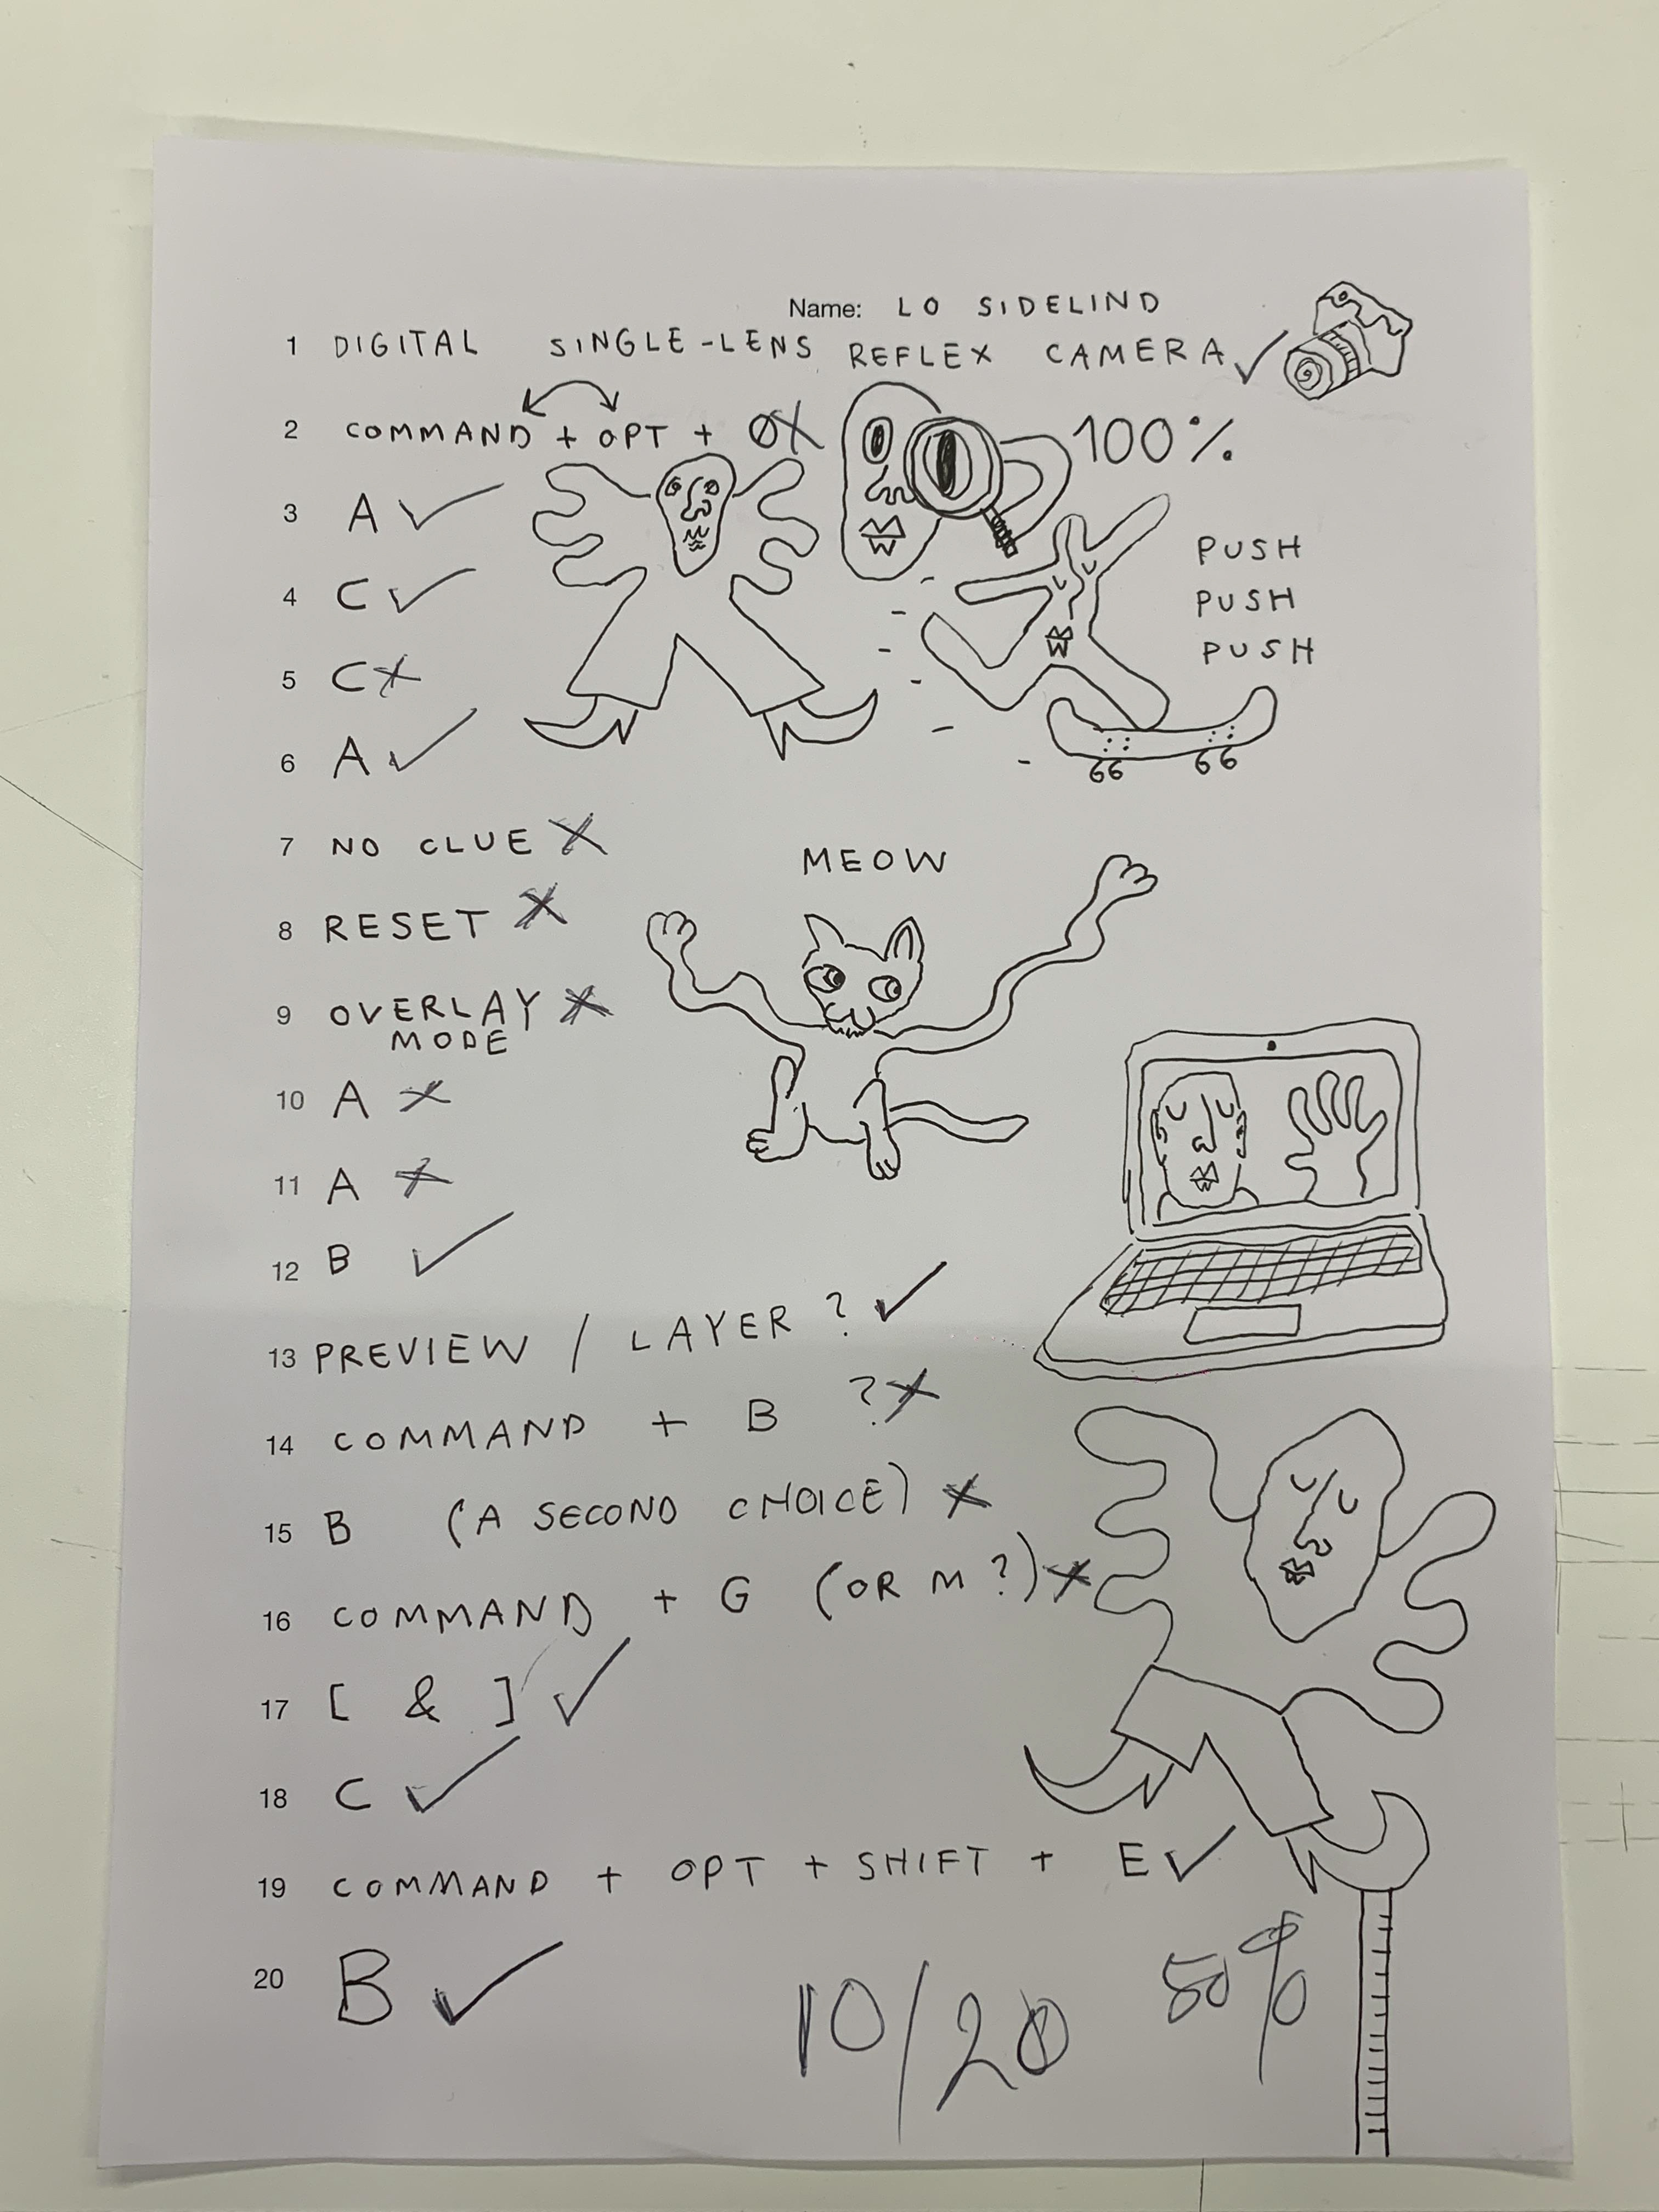 Name: LO SIDELIND
1 DIGITAL SINGLE-LENS REFLEX CAMERA
2 COMMAND + OPT + 0
100%
3 A
PUSH
4 C
PUSH
PUSH
5 C
6 A
66 66
7 NO CLUE
MEOW
8 RESET
9 OVERLAY
MODE
10 A
11 A
12 B
13 PREVIEW / LAYER ?
14 COMMAND + B ?
15 B (A SECOND CHOICE)
16 COMMAND + G (OR M ?)
17 [ & ]
18 C
19 COMMAND + OPT + SHIFT + E
20 B
10/20 50%